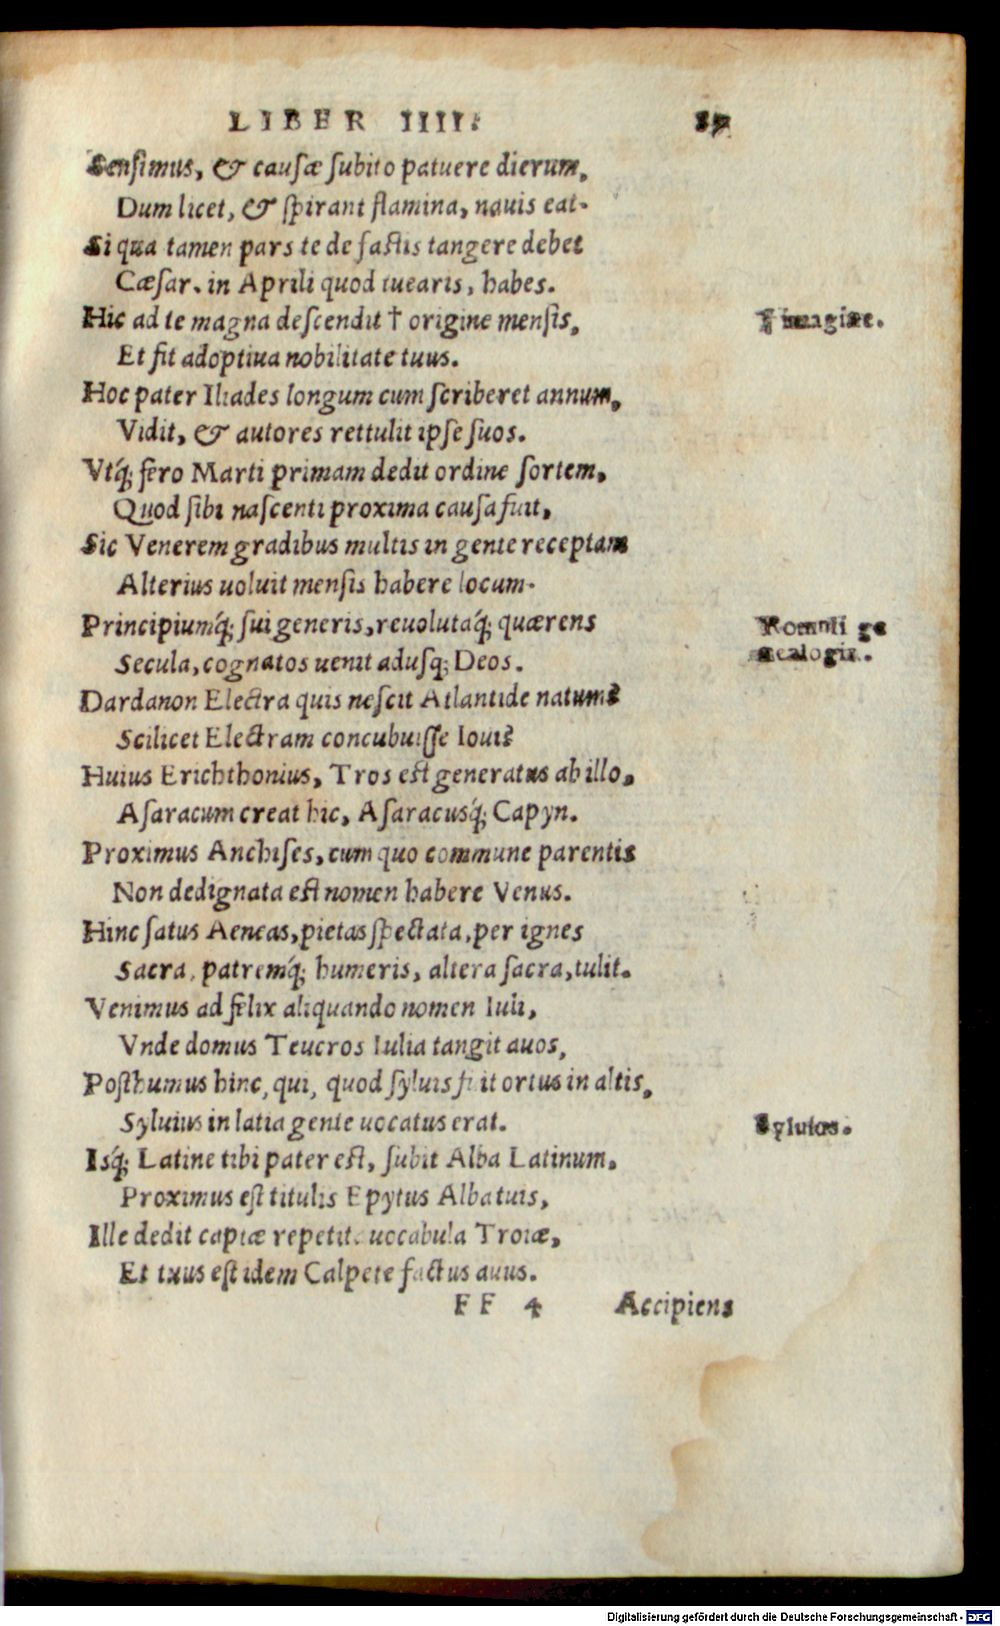 LIBER IIII.
Sensimus, & causæ subito patuere dierum,
Dum licet, & spirant flamina, nauis eat.
Si qua tamen pars te de fastis tangere debet
Cæsar. in Aprili quod tuearis, habes.
Hic ad te magna descendit † origine mensis, † imagine.
Et fit adoptiua nobilitate tuus.
Hoc pater Iliades longum cum scriberet annum,
Vidit, & autores rettulit ipse suos.
Vtq́; fero Marti primam dedit ordine sortem,
Quod sibi nascenti proxima causa fuit,
Sic Venerem gradibus multis in gente receptam
Alterius uoluit mensis habere locum.
Principiumq́; sui generis, reuolutaq́; quærens Romuli ge
Secula, cognatos uenit adusq; Deos. nealogia.
Dardanon Electra quis nescit Atlantide natum?
Scilicet Electram concubuisse Ioui?
Huius Erichthonius, Tros est generatus ab illo,
Asaracum creat hic, Asaracusq́; Capyn.
Proximus Anchises, cum quo commune parentis
Non dedignata est nomen habere Venus.
Hinc satus Aeneas, pietas spectata, per ignes
Sacra, patremq́; humeris, altera sacra, tulit.
Venimus ad felix aliquando nomen Iuli,
Vnde domus Teucros Iulia tangit auos,
Posthumus hinc, qui, quod syluis fuit ortus in altis,
Syluius in latia gente uocatus erat. Syluius.
Isq́; Latine tibi pater est, subit Alba Latinum,
Proximus est titulis Epytus Alba tuis,
Ille dedit captæ repetita uocabula Troiæ,
Et tuus est idem Calpete factus auus.
FF 4 Accipiens
Digitalisierung gefördert durch die Deutsche Forschungsgemeinschaft - DFG